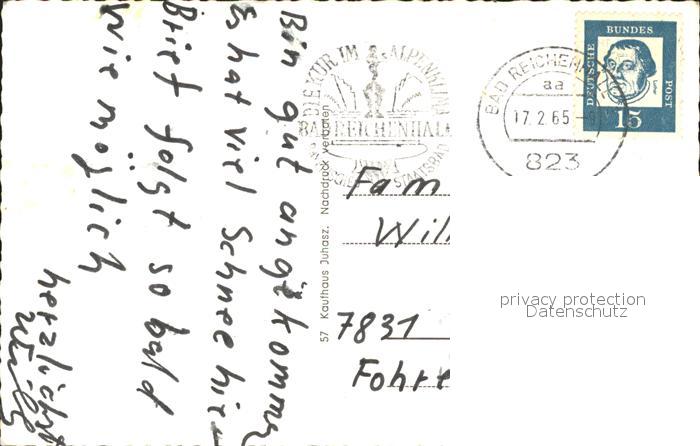 Bin gut angekommen
Es hat viel Schnee hier
Brief folgt so bald
wie möglich
herzlichst
57 Kaufhaus Juhasz. Nachdruck verboten
DIE KUR IM ALPENKLIMA
BAD REICHENHALL
STAATSBAD
BAD REICHENHALL
aa
17.2.65
823
DEUTSCHE BUNDES POST
15
Fam
Will
7831
Fohr
privacy protection
Datenschutz